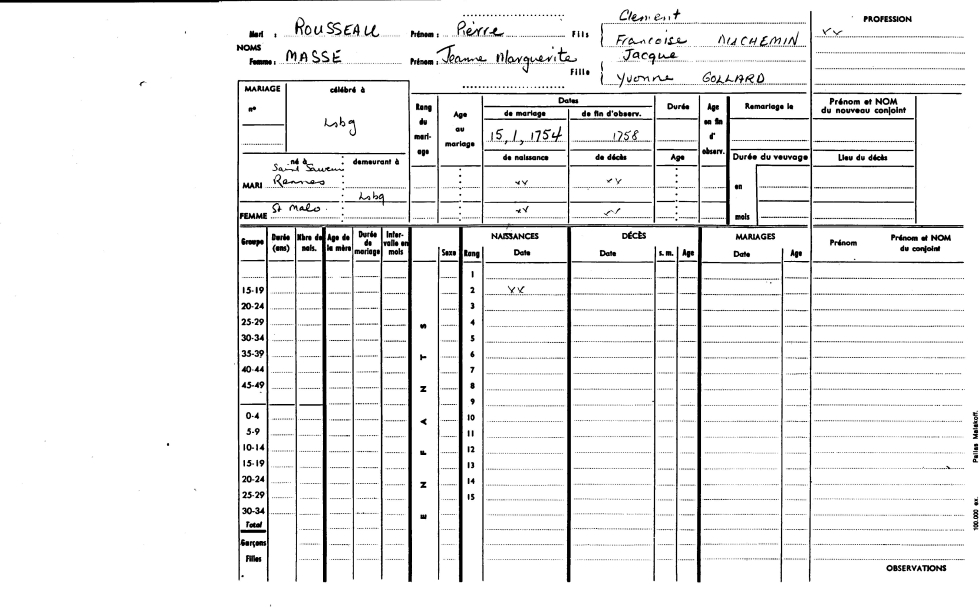 Clement
PROFESSION
Mari : ROUSSEAU Prénom : Pierre Fils Francoise DUCHEMIN vv
NOMS
Femme : MASSE Prénom : Jeanne Marguerite Fille Jacque
Yvonne GOLLARD
MARIAGE célébré à
n° Lsbg
Rang du mari- age
Age au mariage
Dates
de mariage de fin d'observ.
15, 1, 1754 1758
Durée
Age en fin d' observ.
Remariage le
Prénom et NOM du nouveau conjoint
né à demeurant à
de naissance de décès Age Durée du veuvage Lieu du décès
Saint Sauveur
MARI Rennes vv vv en
Lsbg
FEMME St Malo vv vv mois
Groupe Durée (ans) Nbre de nais. Age de la mère Durée de mariage Inter- valle en mois Sexe Rang
NAISSANCES DÉCÈS MARIAGES
Date Date s. m. Age Date Age Prénom Prénom et NOM du conjoint
1
15-19 2 vv
20-24 3
25-29 S 4
30-34 5
35-39 T 6
40-44 7
45-49 N 8
9
0-4 A 10
5-9 11
10-14 F 12
15-19 13
20-24 N 14
25-29 15
30-34 E
Total
Garçons
Filles
OBSERVATIONS
100.000 ex. Pallas Malakoff.